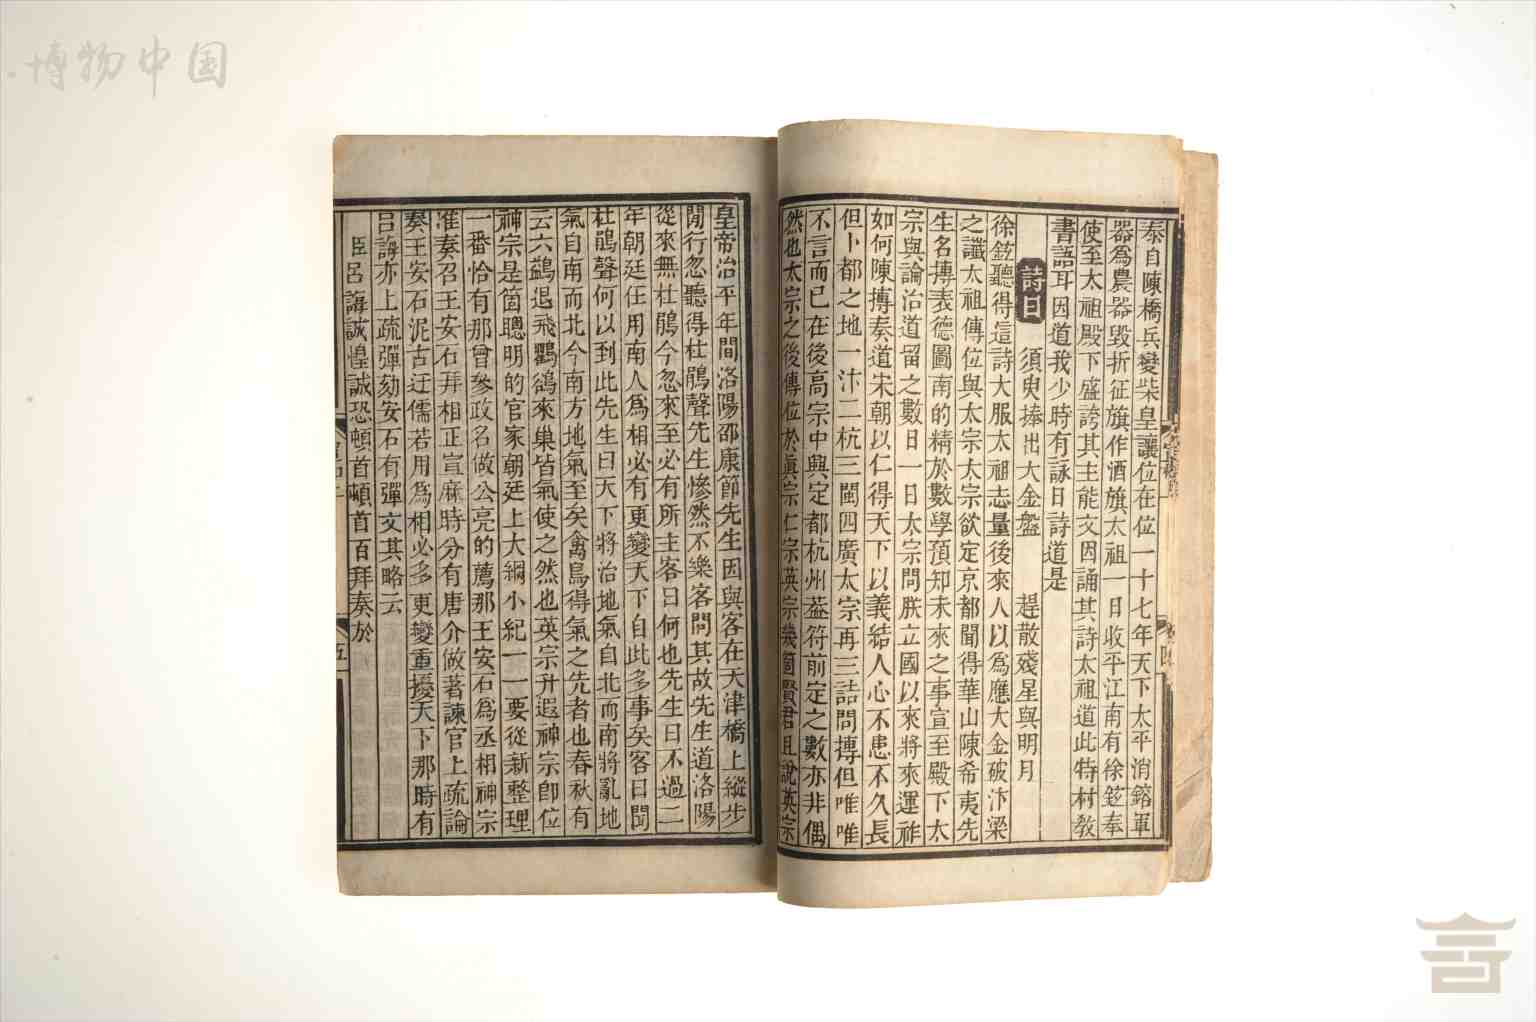 博物中国
泰自陳橋兵變柴皇讓位在位一十七年天下太平消鎔軍
器爲農器毀折征旗作酒旗太祖一日收平江南有徐鉉奉
使至太祖殿下盛誇其主能文因誦其詩太祖道此特村教
書語耳因道我少時有詠日詩道是
詩曰 須臾捧出大金盤 趕散殘星與明月
徐鉉聽得這詩大服太祖志量後來人以爲應大金破汴梁
之讖太祖傳位與太宗太宗欲定京都聞得華山陳希夷先
生名摶表德圖南的精於數學預知未來之事宣至殿下太
宗與論治道留之數日一日太宗問朕立國以來將來運祚
如何陳摶奏道宋朝以仁得天下以義結人心不患不久長
但卜都之地一汴二杭三閩四廣太宗再三詰問摶但唯唯
不言而已在後高宗中興定都杭州葢符前定之數亦非偶
然也太宗之後傳位於眞宗仁宗英宗幾箇賢君且說英宗
皇帝治平年間洛陽邵康節先生因與客在天津橋上縱步
閒行忽聽得杜鵑聲先生慘然不樂客問其故先生道洛陽
從來無杜鵑今忽來至必有所主客曰何也先生曰不過二
年朝廷任用南人爲相必有更變天下自此多事矣客曰聞
杜鵑聲何以到此先生曰天下將治地氣自北而南將亂地
氣自南而北今南方地氣至矣禽鳥得氣之先者也春秋有
云六鷁退飛鸜鵒來巢皆氣使之然也英宗升遐神宗卽位
神宗是箇聰明的官家朝廷上大綱小紀一一要從新整理
一番恰有那曾參政名做公亮的薦那王安石爲丞相神宗
准奏召王安石拜相正宣麻時分有唐介做著諫官上疏論
奏王安石泥古迂儒若用爲相必多更變重擾天下那時有
呂誨亦上疏彈劾安石有彈文其略云
臣呂誨誠惶誠恐頓首頓首百拜奏於
五